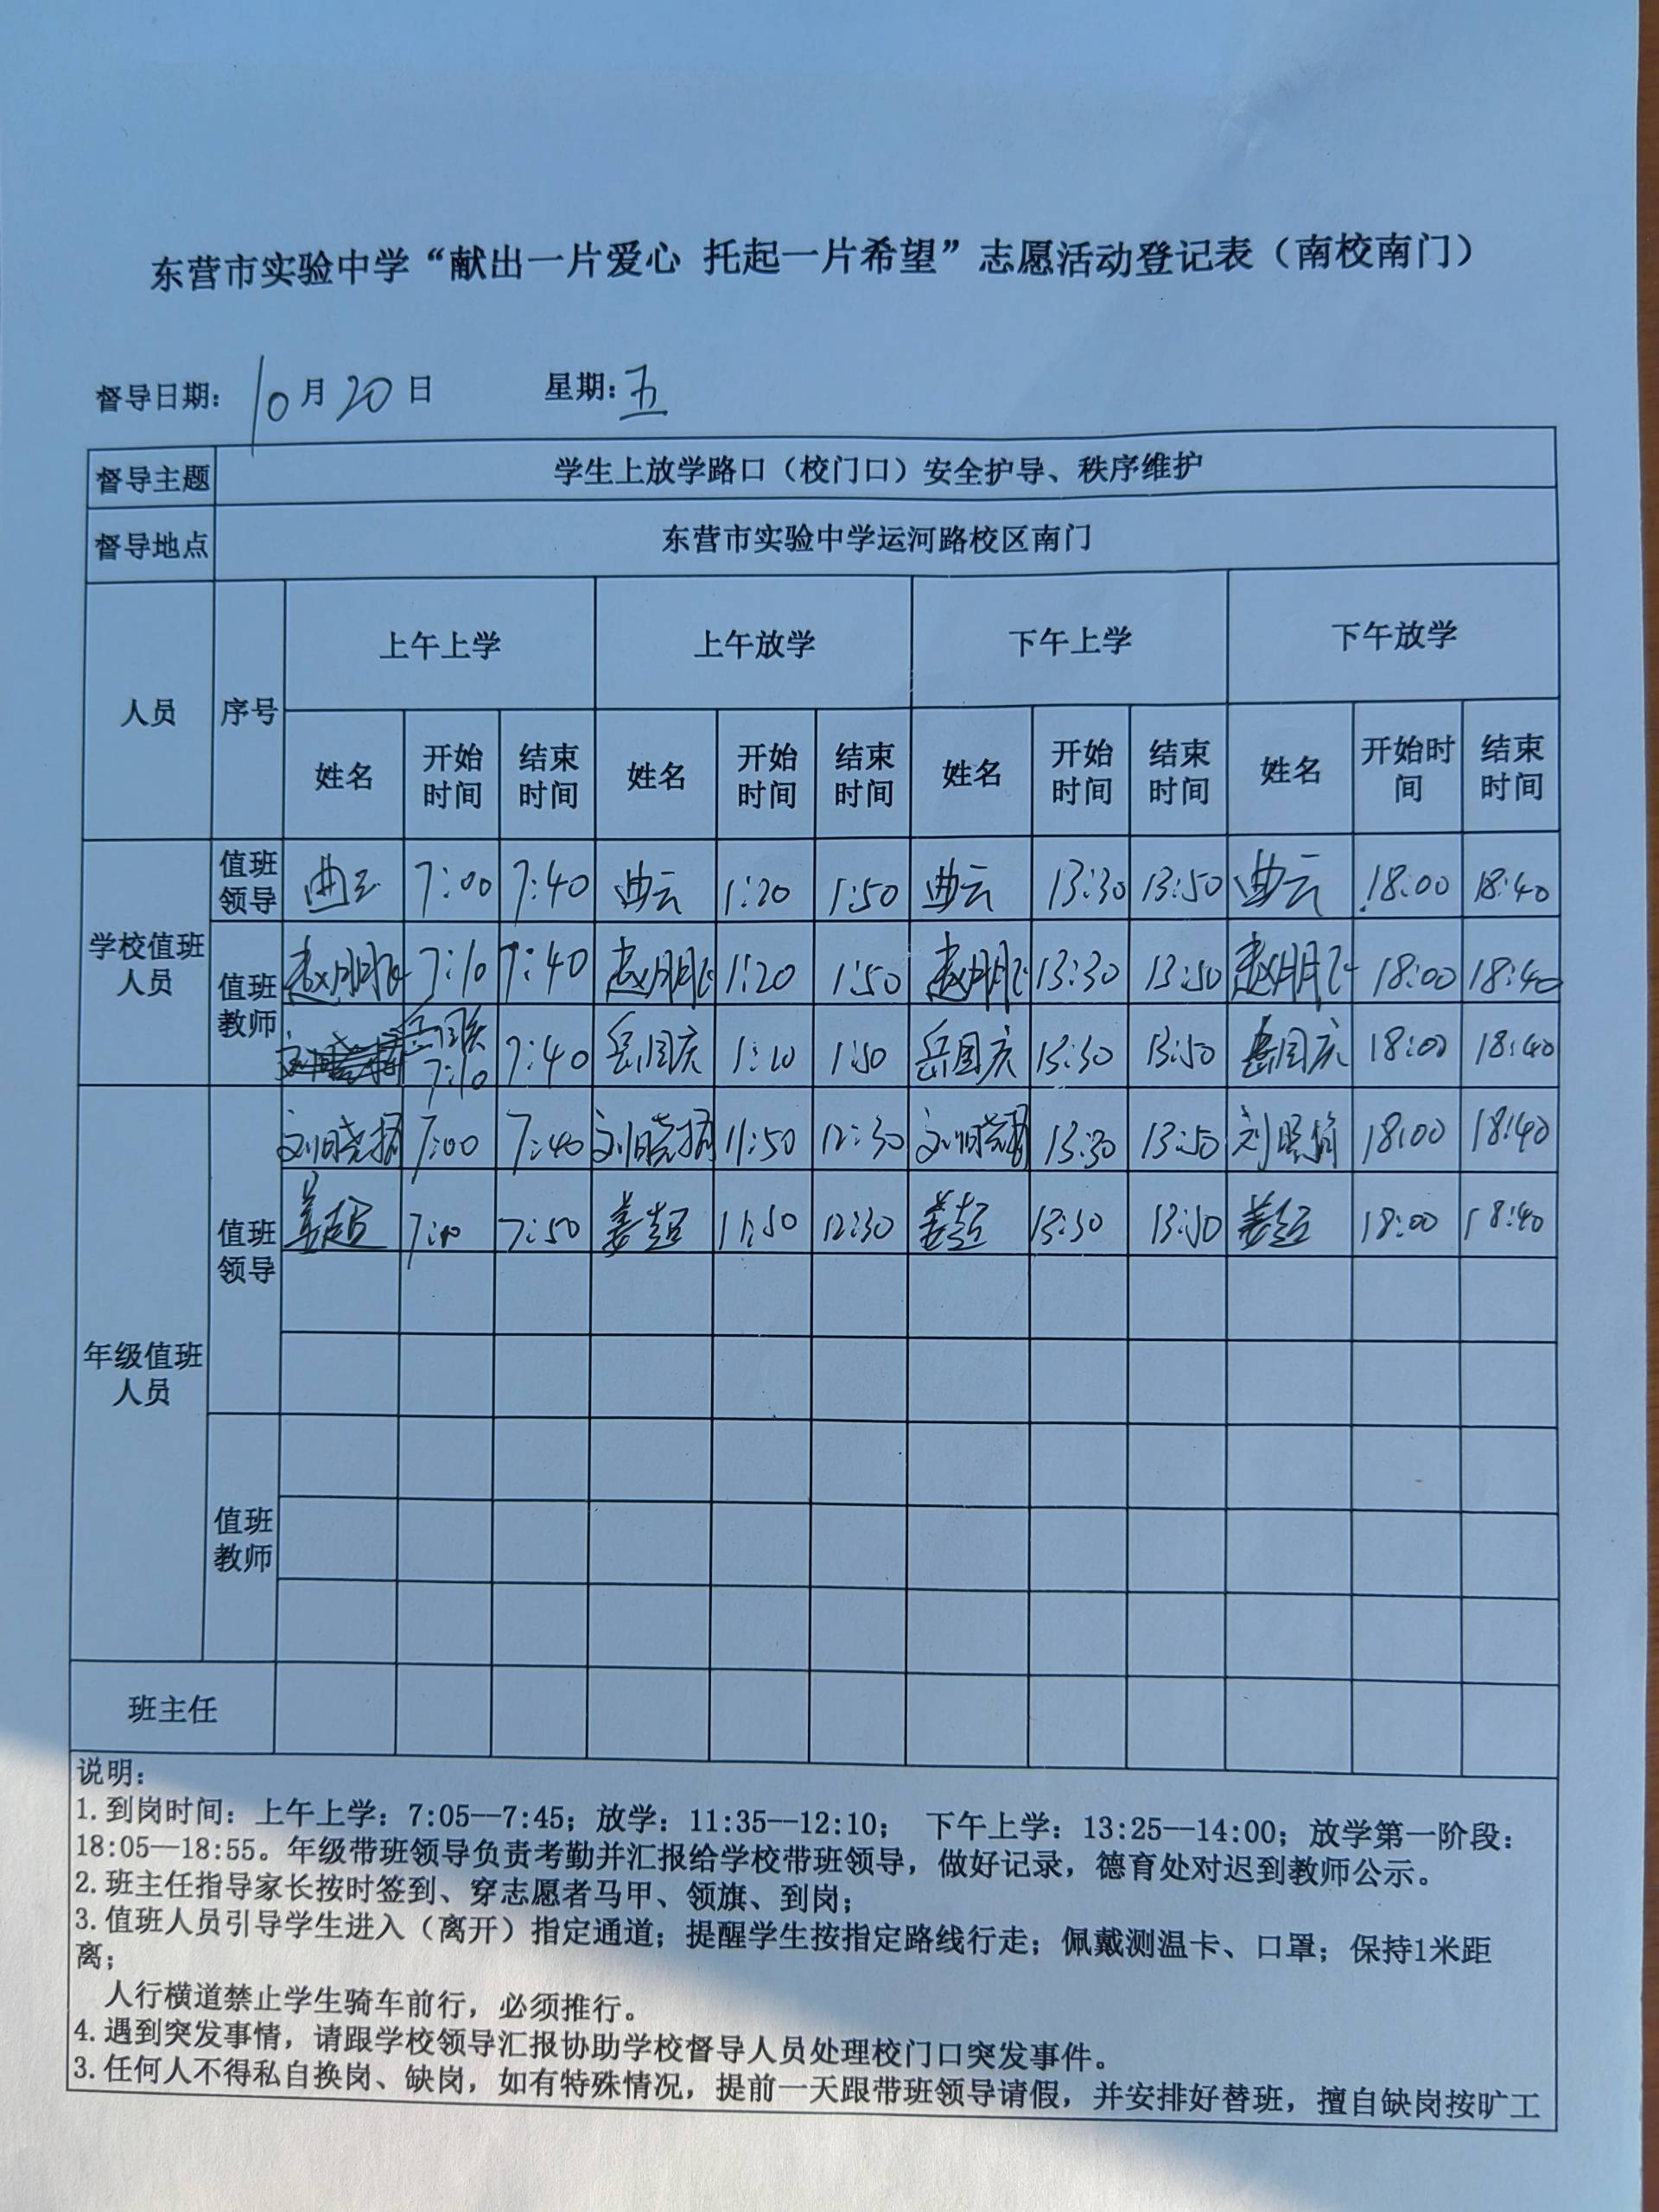 东营市实验中学“献出一片爱心 托起一片希望”志愿活动登记表（南校南门）
督导日期：10月20日 星期：五
督导主题 学生上放学路口（校门口）安全护导、秩序维护
督导地点 东营市实验中学运河路校区南门
人员 序号 上午上学 上午放学 下午上学 下午放学
姓名 开始时间 结束时间 姓名 开始时间 结束时间 姓名 开始时间 结束时间 姓名 开始时间 结束时间
学校值班人员
值班领导 曲云 7:00 7:40 曲云 1:20 1:50 曲云 13:30 13:50 曲云 18:00 18:40
值班教师 赵鹏飞 7:10 7:40 赵鹏飞 1:20 1:50 赵鹏飞 13:30 13:50 赵鹏飞 18:00 18:40
岳国庆 7:10 7:40 岳国庆 1:50 岳国庆 13:30 13:50 岳国庆 18:00 18:40
年级值班人员
值班领导
刘晓 7:00 7:40 刘晓 11:50 12:30 刘晓 13:30 13:50 刘晓 18:00 18:40
姜超 7:50 姜超 11:50 12:30 姜超 13:30 13:50 姜超 18:00 18:40
值班教师
班主任
说明：
1.到岗时间：上午上学：7:05--7:45；放学：11:35--12:10； 下午上学：13:25--14:00；放学第一阶段：
18:05--18:55。年级带班领导负责考勤并汇报给学校带班领导，做好记录，德育处对迟到教师公示。
2.班主任指导家长按时签到、穿志愿者马甲、领旗、到岗；
3.值班人员引导学生进入（离开）指定通道；提醒学生按指定路线行走；佩戴测温卡、口罩；保持1米距
离；
人行横道禁止学生骑车前行，必须推行。
4.遇到突发事情，请跟学校领导汇报协助学校督导人员处理校门口突发事件。
3.任何人不得私自换岗、缺岗，如有特殊情况，提前一天跟带班领导请假，并安排好替班，擅自缺岗按旷工